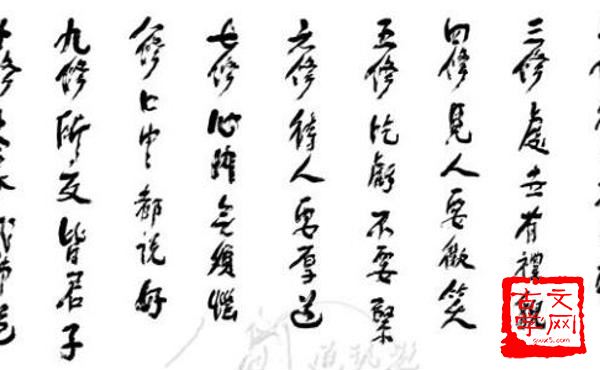 三修處世有禮貌
四修見人要微笑
五修吃虧不要緊
六修待人要厚道
七修心無煩惱
八修口中都說好
九修所友皆君子
十修大家成佛道
古文学网